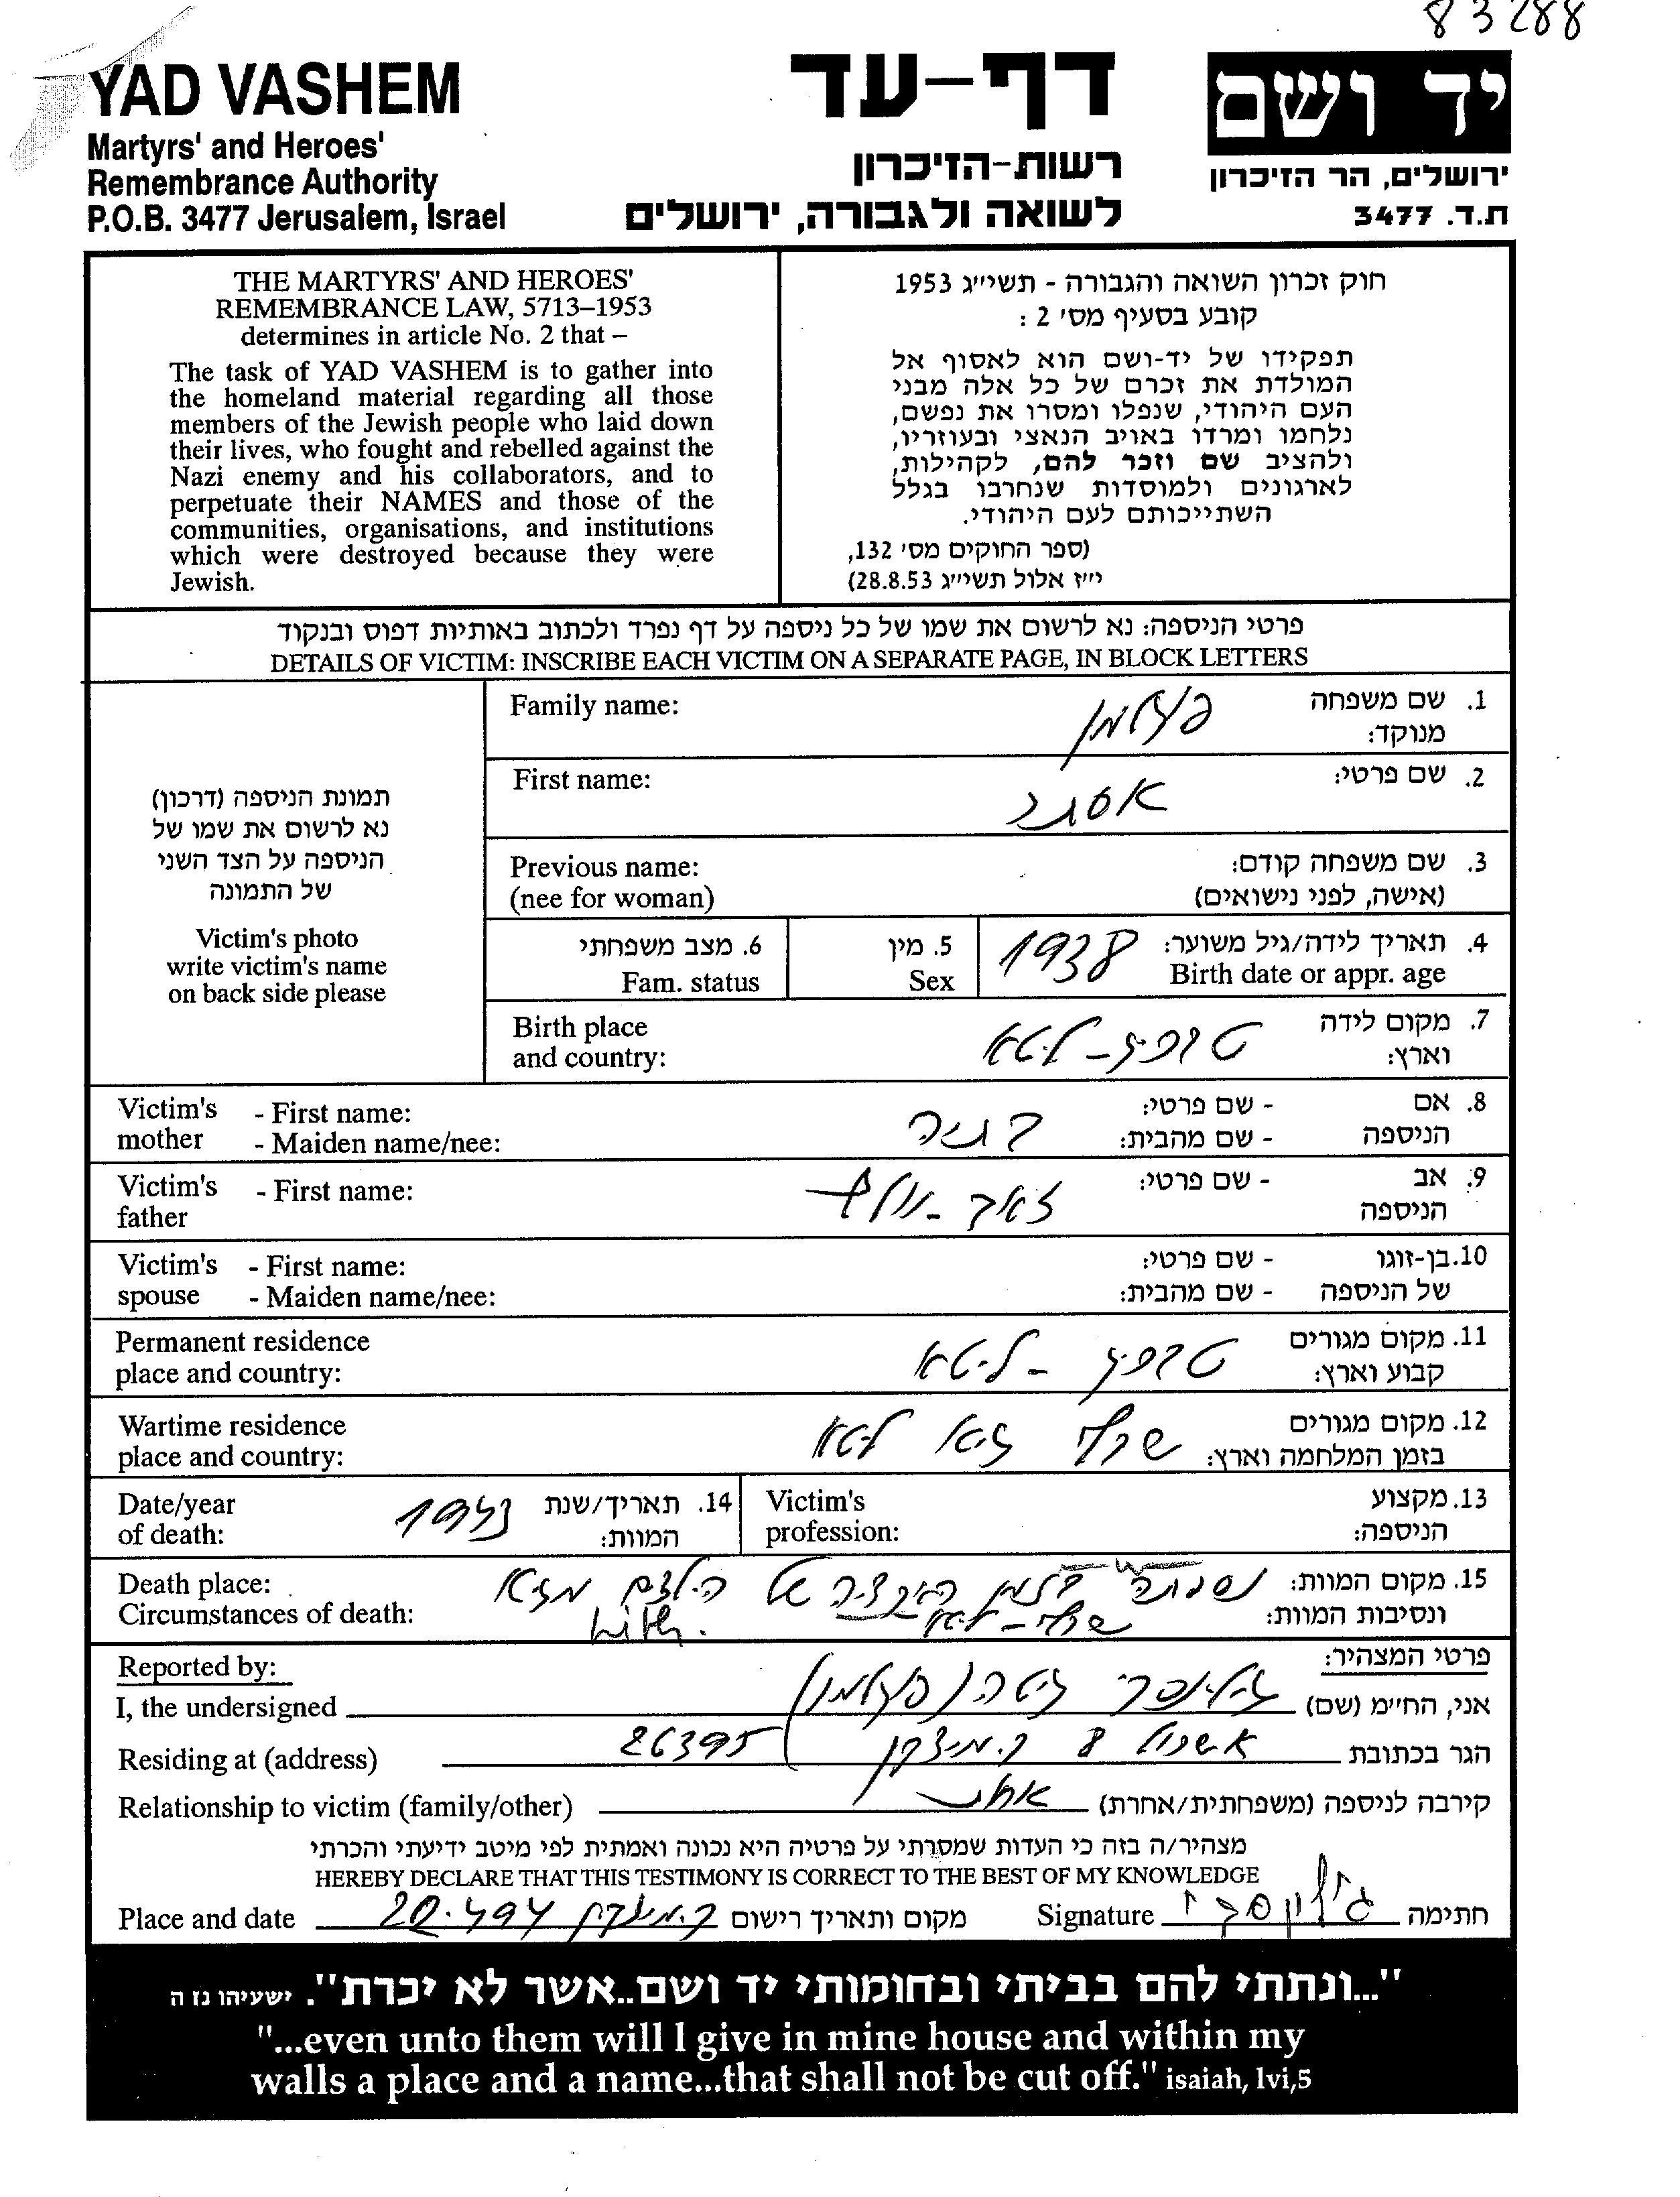 83288
YAD VASHEM
Martyrs' and Heroes'
Remembrance Authority
P.O.B. 3477 Jerusalem, Israel
דף-עד
רשות-הזיכרון
לשואה ולגבורה, ירושלים
יד ושם
ירושלים, הר הזיכרון
ת.ד. 3477
THE MARTYRS' AND HEROES'
REMEMBRANCE LAW, 5713–1953
determines in article No. 2 that –
The task of YAD VASHEM is to gather into
the homeland material regarding all those
members of the Jewish people who laid down
their lives, who fought and rebelled against the
Nazi enemy and his collaborators, and to
perpetuate their NAMES and those of the
communities, organisations, and institutions
which were destroyed because they were
Jewish.
חוק זכרון השואה והגבורה - תשי״ג 1953
קובע בסעיף מס׳ 2 :
תפקידו של יד-ושם הוא לאסוף אל
המולדת את זכרם של כל אלה מבני
העם היהודי, שנפלו ומסרו את נפשם,
נלחמו ומרדו באויב הנאצי ובעוזריו,
ולהציב שם וזכר להם, לקהילות,
לארגונים ולמוסדות שנחרבו בגלל
השתייכותם לעם היהודי.
(ספר החוקים מס׳ 132,
י״ז אלול תשי״ג 28.8.53)
פרטי הניספה: נא לרשום את שמו של כל ניספה על דף נפרד ולכתוב באותיות דפוס ובנקוד
DETAILS OF VICTIM: INSCRIBE EACH VICTIM ON A SEPARATE PAGE, IN BLOCK LETTERS
תמונת הניספה (דרכון)
נא לרשום את שמו של
הניספה על הצד השני
של התמונה
Victim's photo
write victim's name
on back side please
1. שם משפחה
מנוקד:
Family name:
2. שם פרטי: אסתר
First name:
3. שם משפחה קודם:
(אישה, לפני נישואים)
Previous name:
(nee for woman)
4. תאריך לידה/גיל משוער: 1938
Birth date or appr. age
5. מין
Sex
6. מצב משפחתי
Fam. status
7. מקום לידה
וארץ: ליטא
Birth place
and country:
8. אם
הניספה
- שם פרטי:
- שם מהבית:
Victim's mother
- First name:
- Maiden name/nee:
9. אב
הניספה
- שם פרטי: זאב-וולף
Victim's father
- First name:
10. בן-זוגו
של הניספה
- שם פרטי:
- שם מהבית:
Victim's spouse
- First name:
- Maiden name/nee:
11. מקום מגורים
קבוע וארץ: ליטא
Permanent residence
place and country:
12. מקום מגורים
בזמן המלחמה וארץ: שבלי גיטו ליטא
Wartime residence
place and country:
13. מקצוע
הניספה:
Victim's
profession:
14. תאריך/שנת
המוות: 1943
Date/year
of death:
15. מקום המוות:
ונסיבות המוות: נספתה בזמן האקציה של הילדים
שבלי-ליטא
Lith.
Death place:
Circumstances of death:
פרטי המצהיר:
Reported by:
אני, החי״מ (שם)
I, the undersigned
הגר בכתובת אשכול 8 ק.מוצקין 26395
Residing at (address)
קירבה לניספה (משפחתית/אחרת)
Relationship to victim (family/other)
מצהיר/ה בזה כי העדות שמסרתי על פרטיה היא נכונה ואמתית לפי מיטב ידיעתי והכרתי
HEREBY DECLARE THAT THIS TESTIMONY IS CORRECT TO THE BEST OF MY KNOWLEDGE
Place and date
מקום ותאריך רישום ק.מוצקין
Signature
חתימה
"...ונתתי להם בביתי ובחומותי יד ושם..אשר לא יכרת". ישעיהו נז ה
"...even unto them will I give in mine house and within my
walls a place and a name...that shall not be cut off." isaiah, lvi,5